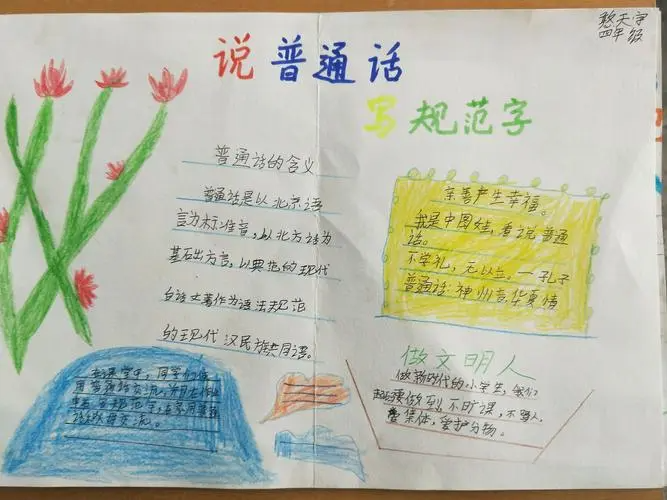 四年级
说普通话
写规范字
普通话的含义
普通话是以北京语
言为标准音，以北方话为
基石出方言，以典范的现代
白话文著作为语法规范
的现代汉民族共同语。
亲善产生幸福。
我是中国娃，看说普通
话。
不学礼，无以立。一孔子
普通话：神州音华夏情
做文明人
做新时代的小学生，我们
要做到不旷课，不骂人，
集体，爱护分物。
在课堂中，同学们使
用普通话交流，并且在作业
写规范字